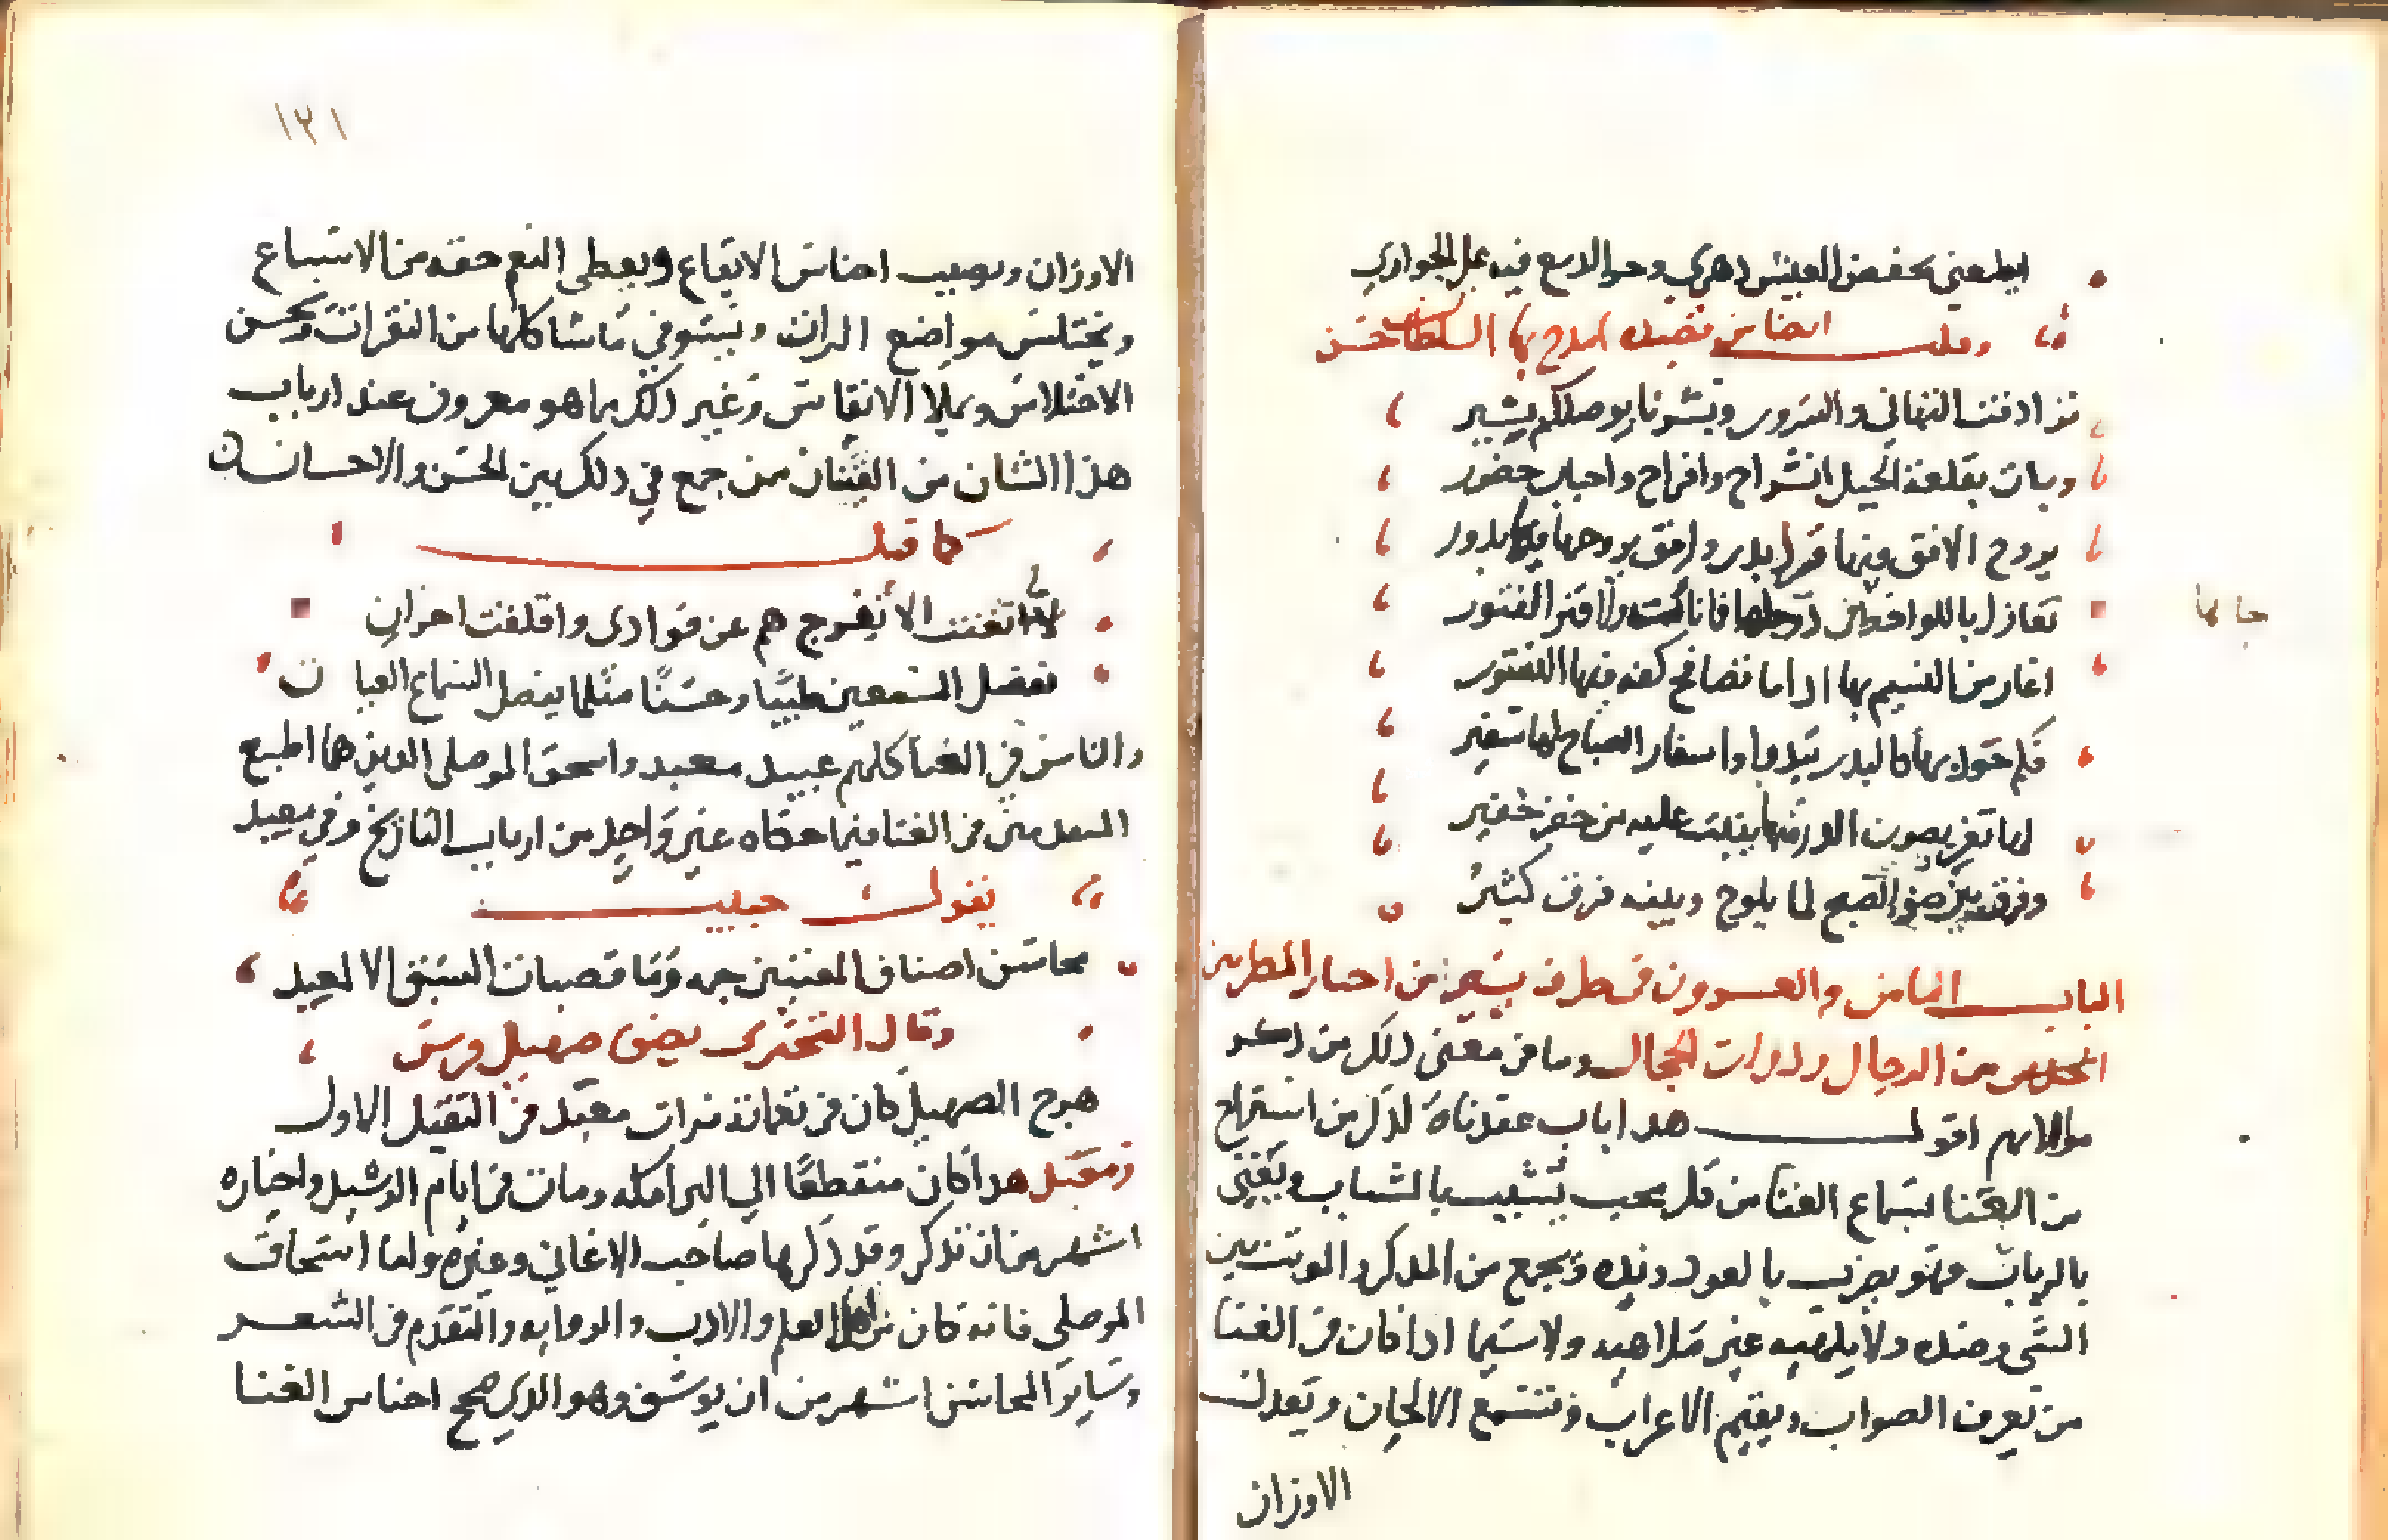 ايطمعني بخفض العيش دهري وحو الدمع فيه عمل الجواري
وقلت ايضا من قصيده امدح بها السلطان حسن
ترادفت التهاني والسرور وبشرنا بوصلكم بشير
وبات بقلعة الجبل انشراح وافراح واحباب حضور
بروح الافق فيها بدر وافق بروجها فيها بدور
تغازل باللواحظ من فانا ولا فتر الفتور
جا لها
اغار من النسيم بها اذا ما تصافح كفه فيها الستور
فكم خود بها كالبدر تبدوا واسفار الصباح لها سفير
لها ثغر يصون الدر منها يبيت عليه من خفر خفير
وفرق بين ضو الصبح لما يلوح وبينه فرق كثير
الباب الثامن والعشرون في طرف يسير من اخبار المطربين
المجيدين من الرجال وذوات الحجال وما في معنى ذلك من
موالاتهم اقول هذا باب عقدناه لذكر من
من الغنا لسماع الغنا من كل محب تشبب بالشباب ويغني
بالرباب فهو يضرب بالعود ونده ويجمع من المذكر والمونث بين
الشي وضده ولا يلهيه غير ملاهيه ولا سيما اذا كان في الغنا
من يعرف الصواب ويقيم الاعراب ويشبع الالحان ويعدل
الاوزان
١٢١
الاوزان ويصيب اجناس الايقاع ويعطي النغم حقه من الاشباع
ويختلس مواضع النبرات ويستوفي ما شاكلها من النقرات ويحسن
الاختلاس ويملا الانفاس وغير ذلك مما هو معروف عند ارباب
هذا الشان من القينات ممن جمع في ذلك بين الحسن والاحسان
كما قيل
ما تغنت الا تفرج هم عن فوادي واقلعت احزان
تفضل المسمعين طيبا وحسنا مثلما يفضل السماع العيان
والناس في الغنا كلهم عبيد معبد واسحق الموصلي الذين هما اطبع
المتقدمين في الغنا فيما حكاه غير واحد من ارباب التاريخ وفي معبد
يقول حبيب
محاسن اصناف المغنين جمه وما قصبات السبق الا لمعبد
وقال البحتري يصف صهيل فرس
هزج الصهيل كان في نغماته نبرات معبد في الثقيل الاول
ومعبد هذا كان منقطعا الي البرامكه ومات في ايام الرشيد واخباره
اشهر من ان تذكر وقد ذكرها صاحب الاغاني وغيره واما اسحاق
الموصلي فانه كان من اهل العلم والادب والروايه والتقدم في الشعر
وساير المحاسن اشهر من ان يوصف وهو الذي صحح اجناس الغنا